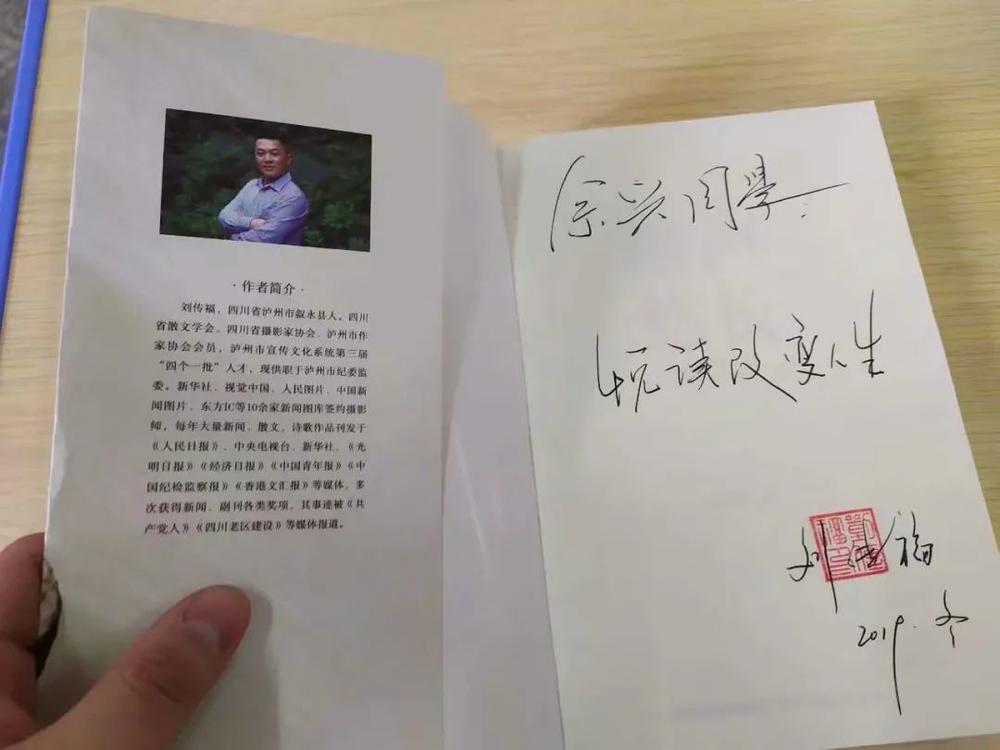 ·作者简介·
刘传福，四川省泸州市叙永县人。四川
省散文学会、四川省摄影家协会、泸州市作
家协会会员，泸州市宣传文化系统第三届
“四个一批”人才，现供职于泸州市纪委监
委。新华社、视觉中国、人民图片、中国新
闻图片、东方IC等10余家新闻图库签约摄影
师，每年大量新闻、散文、诗歌作品刊发于
《人民日报》、中央电视台、新华社、《光
明日报》《经济日报》《中国青年报》《中
国纪检监察报》《香港文汇报》等媒体，多
次获得新闻、副刊各类奖项，其事迹被《共
产党人》《四川老区建设》等媒体报道。
余兴同学：
悦读改变人生
刘传福
2019.冬